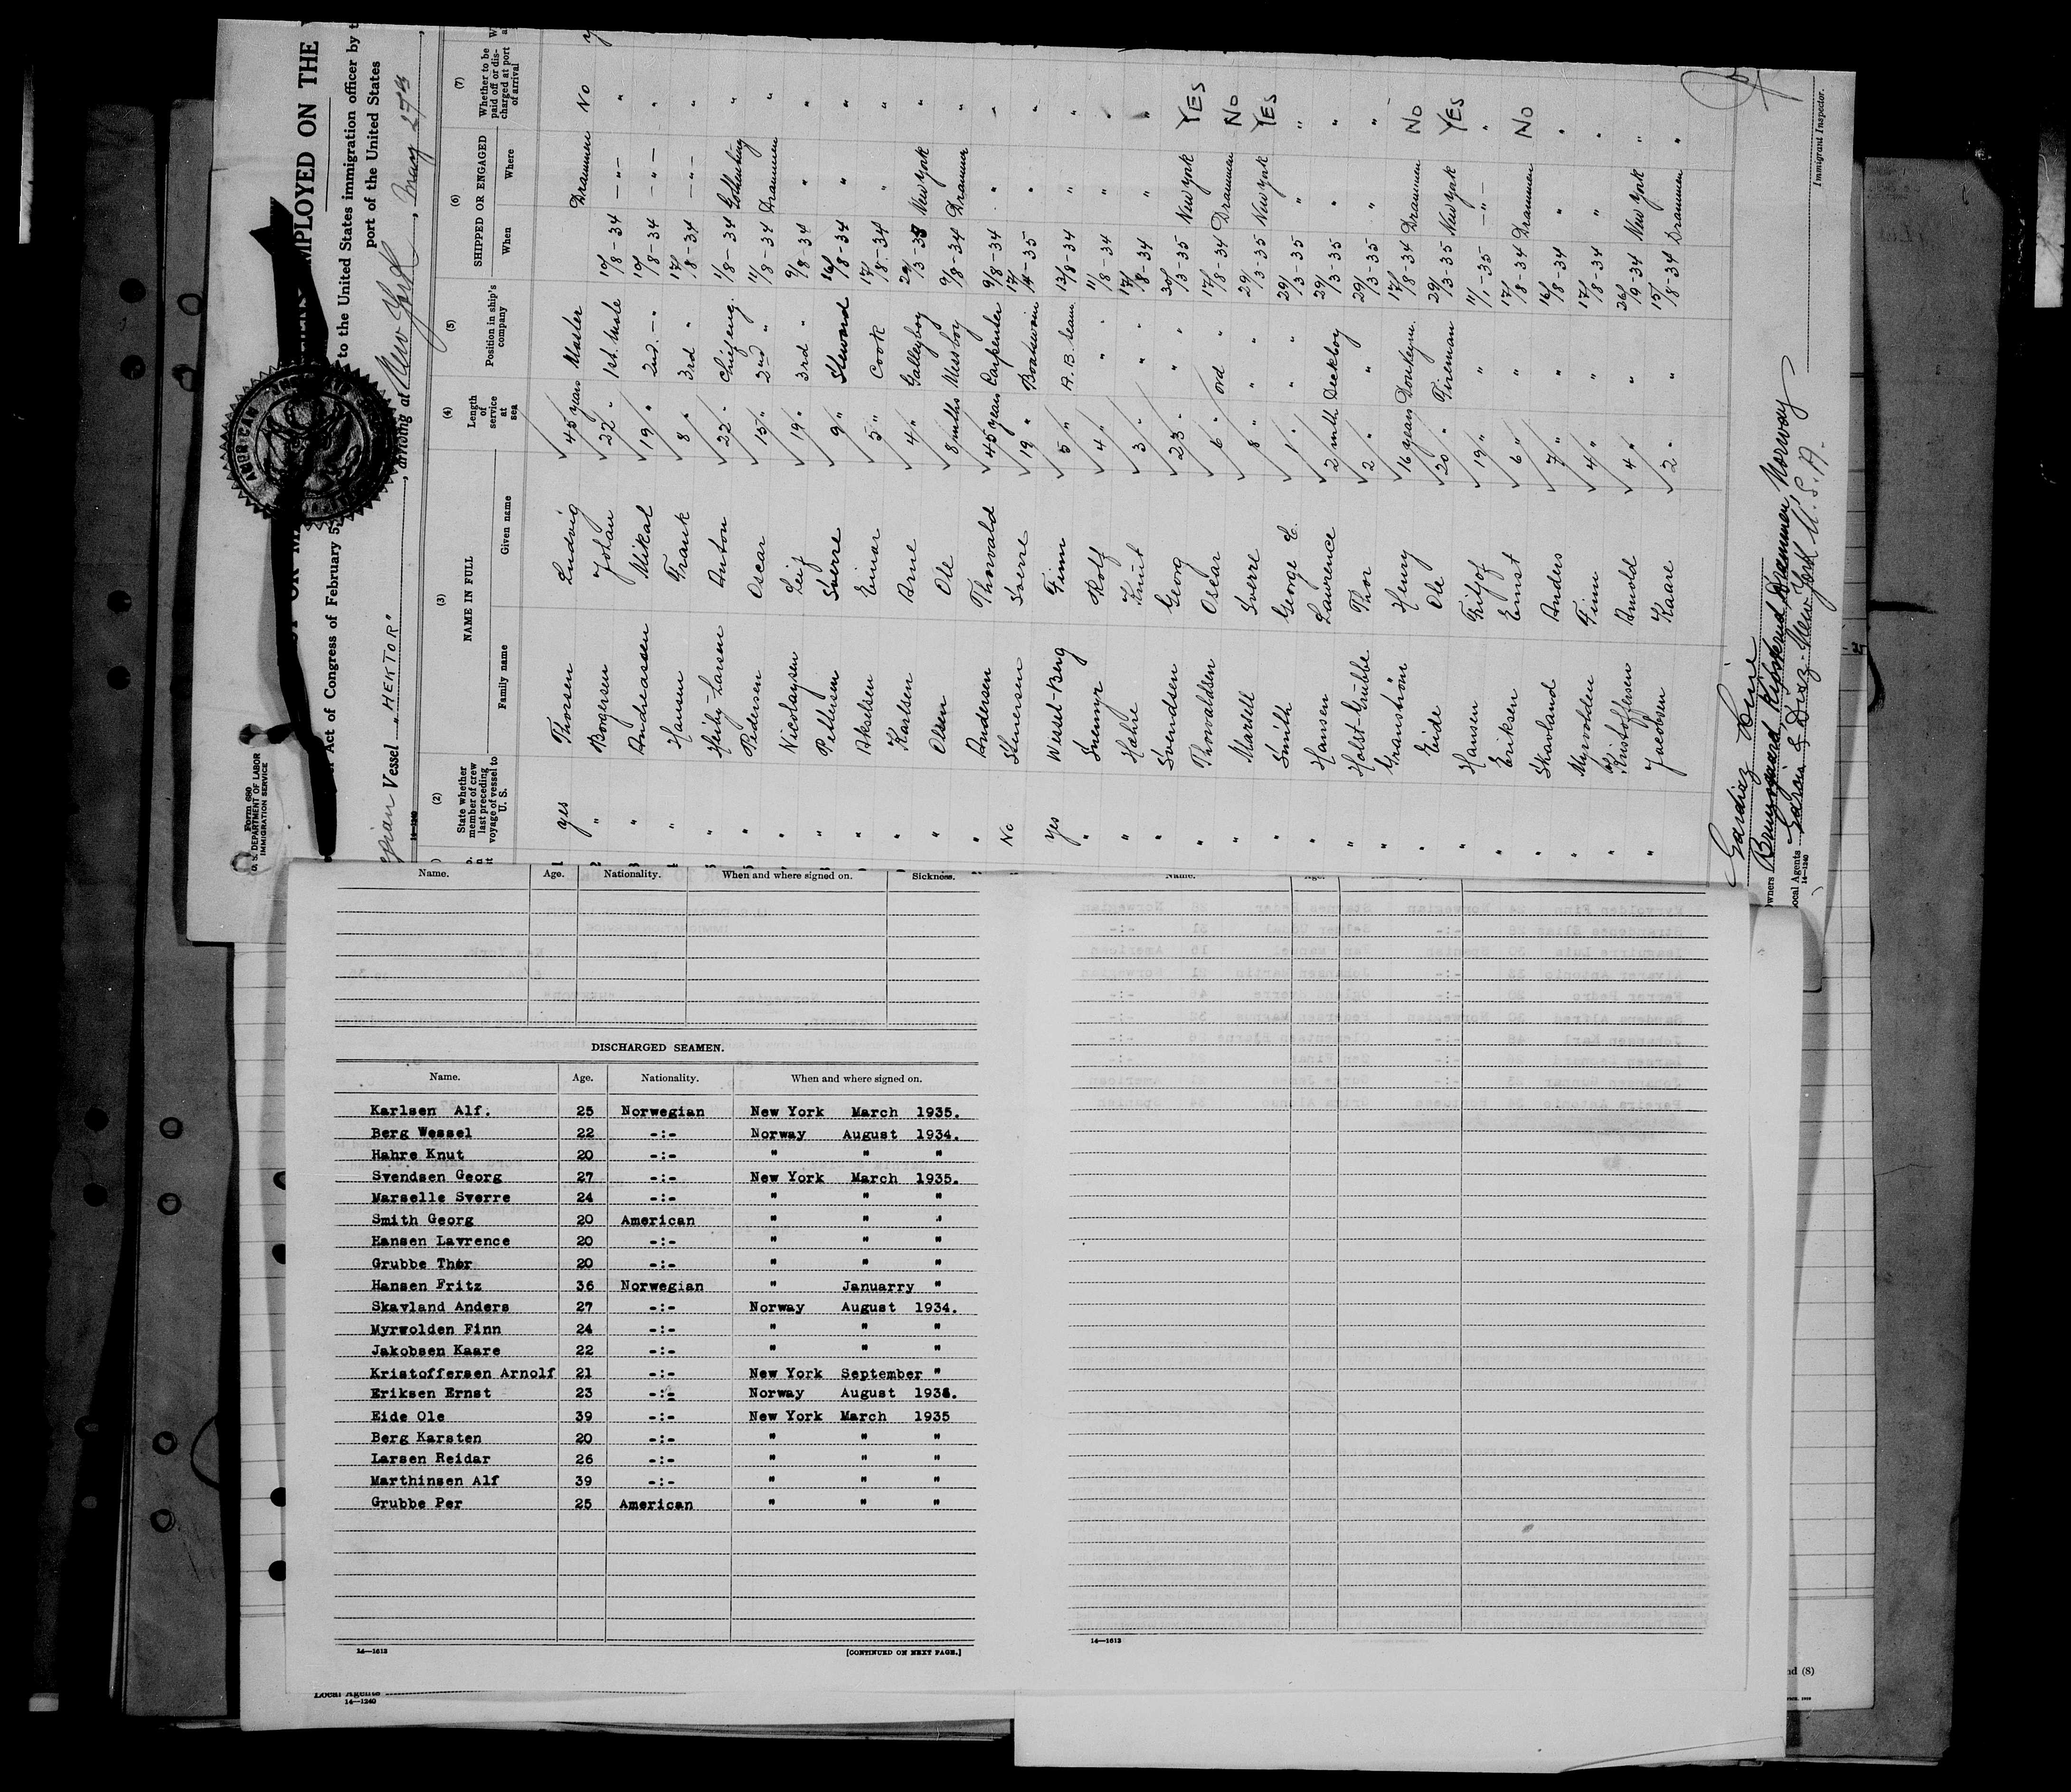 Form 680
U. S. DEPARTMENT OF LABOR
IMMIGRATION SERVICE
EMPLOYED ON THE
Act of Congress of February 5, to the United States immigration officer by
port of the United States
Vessel "HEKTOR", arriving at New York, May 27th
14—1240
(2) (3) (4) (5) (6) (7)
State whether member of crew last preceding voyage of vessel to U. S.
NAME IN FULL
Family name Given name
Length of service at sea
Position in ship's company
SHIPPED OR ENGAGED
When Where
Whether to be paid off or discharged at port of arrival
1 yes Thorsen Ludvig 45 years Master Drammen No
2 " Borgersen Johan 22 " 1st. Mate 10/8-34 -"- "
3 " Andreassen Mikal 19 " 2nd. -"- 10/8-34 -"- "
4 " Hansen Frank 8 " 3rd " 17/8-34 -"- "
5 " Heiby-Larsen Anton 22 " Chif eng. 1/8-34 Gothenburg "
" Pedersen Oscar 15 " 2nd " 11/8-34 Drammen "
" Nicolaysen Leif 19 " 3rd " 9/8-34 " "
" Pettersen Sverre 9 " Steward 16/8-34 " "
" Akselsen Einar 5 " Cook 17/8-34 " "
" Karlsen Arne 4 " Galleyboy 29/3-35 New York "
" Olsen Ole 8 mnths Messboy 9/8-34 Drammen "
" Andersen Thorvald 45 years Carpenter 9/8-34 " "
No Stenersen Sverre 19 " Boatswain 17/4-35 " "
yes Wessel-Berg Finn 5 " A. B. Seam. 13/8-34 " "
" Svenny Rolf 4 " " 11/8-34 " "
" Hahre Knut 3 " " 17/8-34 " "
" Svendsen Georg 23 " " 30/3-35 New York YES
" Thorvaldsen Oscar 6 " ord " 17/8-34 Drammen NO
" Martell Sverre 8 " " 29/3-35 New York YES
" Smith George E. 1 " " 29/3-35 " "
" Hansen Lawrence 2 mth. Deckboy 29/3-35 " "
" Holst-Grubbe Thor 2 " " 29/3-35 " "
" Granström Henry 16 years Donkeym. 17/8-34 Drammen NO
" Eide Ole 20 " Fireman 29/3-35 New York YES
" Hansen Fritjof 19 " " 11/1-35 -"- "
" Eriksen Ernst 6 " " 17/8-34 Drammen NO
" Skavland Anders 7 " " 16/8-34 " "
" Myrvolden Finn 4 " " 17/8-34 " "
" Kristoffersen Arnold 4 " " 26/9-34 New York "
" Jacobsen Kaare 2 " " 15/8-34 Drammen "
Immigrant Inspector.
Gardiaz Line
Owners Bruusgaard Kiøsterud Drammen, Norway
Local Agents Garcia & Diaz - New York U. S. A.
14—1240
Name. Age. Nationality. When and where signed on. Sickness.
DISCHARGED SEAMEN.
Name. Age. Nationality. When and where signed on.
Karlsen Alf. 25 Norwegian New York March 1935.
Berg Wessel 22 -:- Norway August 1934.
Hahre Knut 20 -:- " " "
Svendsen Georg 27 -:- New York March 1935.
Marselle Sverre 24 -:- " " "
Smith Georg 20 American " " "
Hansen Lavrence 20 -:- " " "
Grubbe Thor 20 -:- " " "
Hansen Fritz 36 Norwegian " Januarry "
Skavland Anders 27 -:- Norway August 1934.
Myrwolden Finn 24 -:- " " "
Jakobsen Kaare 22 -:- " " "
Kristoffersen Arnolf 21 -:- New York September "
Eriksen Ernst 23 -:- Norway August 1934.
Eide Ole 39 -:- New York March 1935
Berg Karsten 20 -:- " " "
Larsen Reidar 26 -:- " " "
Marthinsen Alf 39 -:- " " "
Grubbe Per 25 American " " "
14—1613 [CONTINUED ON NEXT PAGE.]
14—1613
Local Agents
14—1240